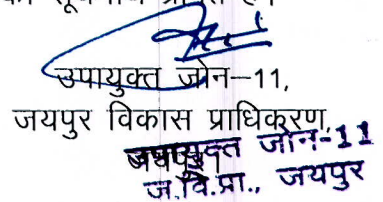 उपायुक्त जोन–11,
जयपुर विकास प्राधिकरण,
उपायुक्त जोन-11
ज.वि.प्रा., जयपुर